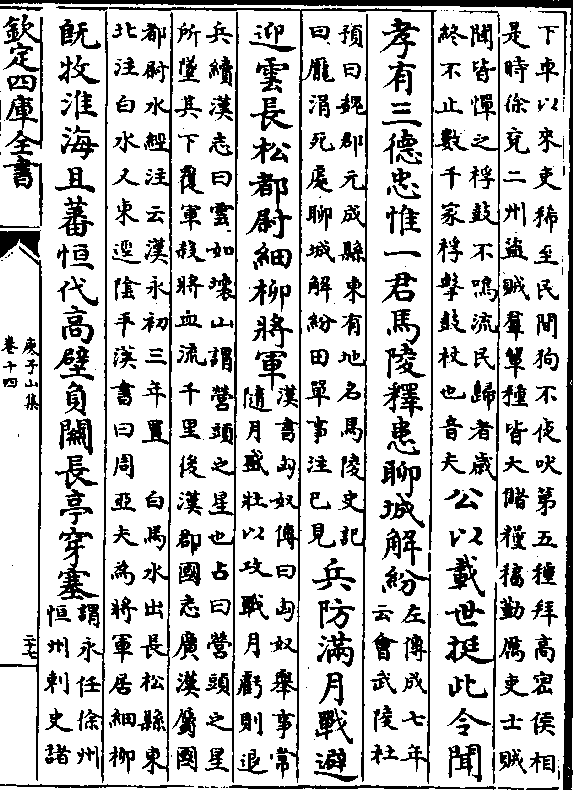 下車以來吏稀至民間狗不夜吠第五種拜高密侯相
是時徐兗二州盜賊羣輩種皆大賭糧稸勤厲吏士賊
聞皆憚之桴鼓不鳴流民歸者歲
終不止數千家桴擊鼓杖也音夫
公以載世挺此令聞
孝有三德忠惟一君馬陵釋患聊城解紛
左傳成七年
云會武陵社
預曰魏郡元成縣東有地名馬陵史記
曰龐涓死處聊城解紛田單事注已見
兵防滿月戰避
迎雲長松都尉細柳將軍
漢書匈奴傳曰匈奴舉事常
隨月盛壯以攻戰月虧則退
兵續漢志曰雲如壞山謂營頭之星也占曰營頭之星
所墜其下覆軍殺將血流千里後漢郡國志廣漢屬國
都尉水經注云漢永初三年置 白馬水出長松縣東
北注白水又東逕陰平漢書曰周亞夫為將軍居細柳
旣牧淮海且蕃恒代高壁負關長亭穿塞
謂永任徐州
恒州刺史諸
欽定四庫全書
庾子山集
卷十四
二七